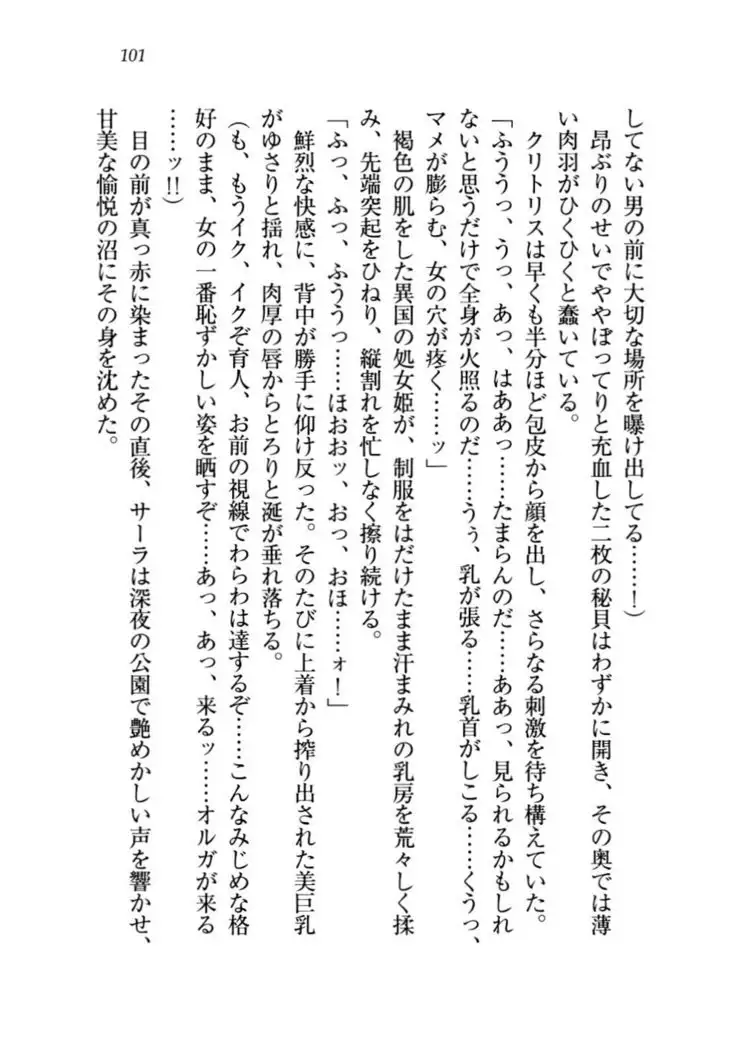 101
してない男の前に大切な場所を曝け出してる……！）
昂ぶりのせいでややぽってりと充血した二枚の秘貝はわずかに開き、その奥では薄
い肉羽がひくひくと蠢いている。
クリトリスは早くも半分ほど包皮から顔を出し、さらなる刺激を待ち構えていた。
「ふううっ、うっ、あっ、はああっ……たまらんのだ……ああっ、見られるかもしれ
ないと思うだけで全身が火照るのだ……うぅ、乳が張る……乳首がしこる……くうっ、
マメが膨らむ、女の穴が疼く……ッ」
褐色の肌をした異国の処女姫が、制服をはだけたまま汗まみれの乳房を荒々しく揉
み、先端突起をひねり、縦割れを忙しなく擦り続ける。
「ふっ、ふっ、ふううっ……ほおおッ、おっ、おほ……ォ！」
鮮烈な快感に、背中が勝手に仰け反った。そのたびに上着から搾り出された美巨乳
がゆさりと揺れ、肉厚の唇からとろりと涎が垂れ落ちる。
（も、もうイク、イクぞ育人、お前の視線でわらわは達するぞ……こんなみじめな格
好のまま、女の一番恥ずかしい姿を晒すぞ……あっ、あっ、来るッ……オルガが来る
……ッ!!）
目の前が真っ赤に染まったその直後、サーラは深夜の公園で艶めかしい声を響かせ、
甘美な愉悦の沼にその身を沈めた。